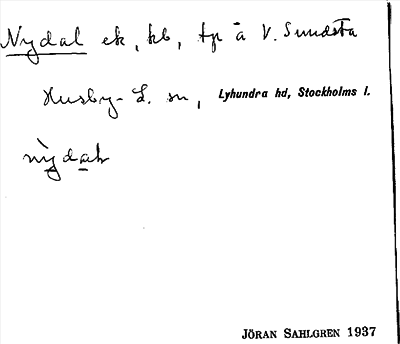 Nydal ek, kb, tp å V. Sundsta
Husby-L. sn, Lyhundra hd, Stockholms l.
nỳdaḥ
JÖRAN SAHLGREN 1937